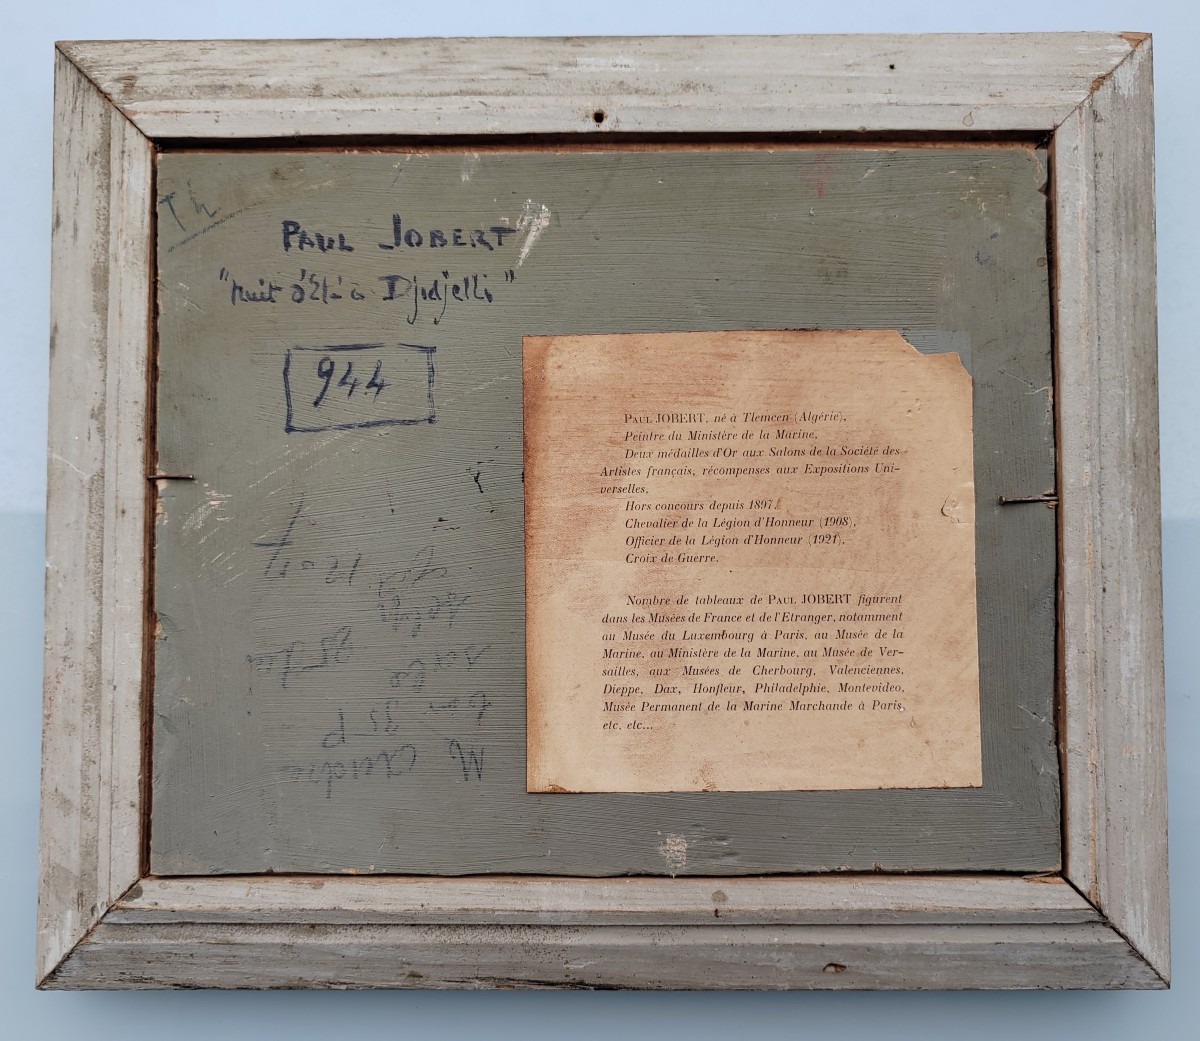 Th
PAUL JOBERT
"nuit d'Été à Djidjelli"
944
PAUL JOBERT, né à Tlemcen (Algérie),
Peintre du Ministère de la Marine,
Deux médailles d'Or aux Salons de la Société des
Artistes français, récompenses aux Expositions Uni-
verselles,
Hors concours depuis 1897,
Chevalier de la Légion d'Honneur (1908),
Officier de la Légion d'Honneur (1921),
Croix de Guerre.
Nombre de tableaux de PAUL JOBERT figurent
dans les Musées de France et de l'Etranger, notamment
au Musée du Luxembourg à Paris, au Musée de la
Marine, au Ministère de la Marine, au Musée de Ver-
sailles, aux Musées de Cherbourg, Valenciennes,
Dieppe, Dax, Honfleur, Philadelphie, Montevideo,
Musée Permanent de la Marine Marchande à Paris,
etc, etc...